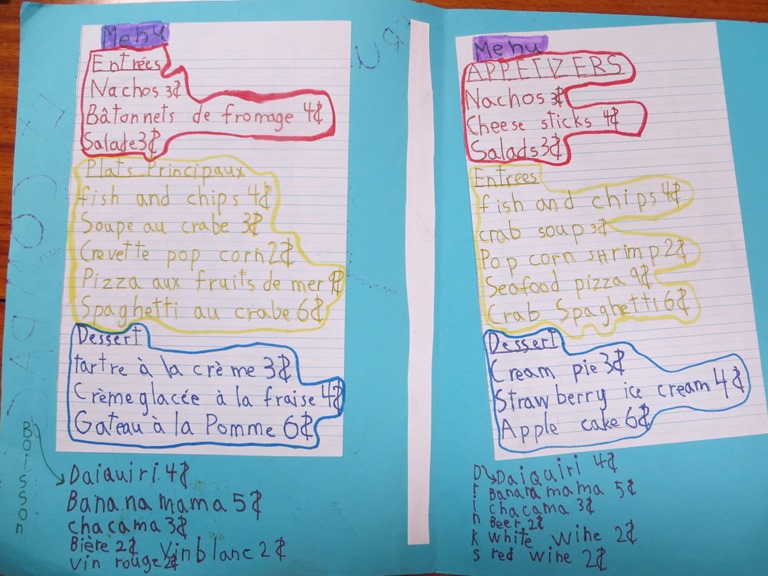 Menu
Entrées
Nachos 3$
Bâtonnets de fromage 4$
Salade 3$
Plats Principaux
fish and chips 4$
Soupe au crabe 3$
Crevette pop corn 2$
Pizza aux fruits de mer 9$
Spaghetti au crabe 6$
Dessert
tartre à la crème 3$
Crème glacée à la fraise 4$
Gateau à la Pomme 6$
Boisson
Daiquiri 4$
Banana mama 5$
chacama 3$
Bière 2$ vin blanc 2$
vin rouge 2$
Menu
APPETIZERS
Nachos 3$
Cheese sticks 4$
Salads 3$
Entrees
fish and chips 4$
crab soup 3$
Pop corn shrimp 2$
Seafood pizza 9$
Crab Spaghetti 6$
Dessert
Cream pie 3$
Strawberry ice cream 4$
Apple cake 6$
Drinks
Daiquiri 4$
Banana mama 5$
chacama 3$
Beer 2$
white wine 2$
red wine 2$